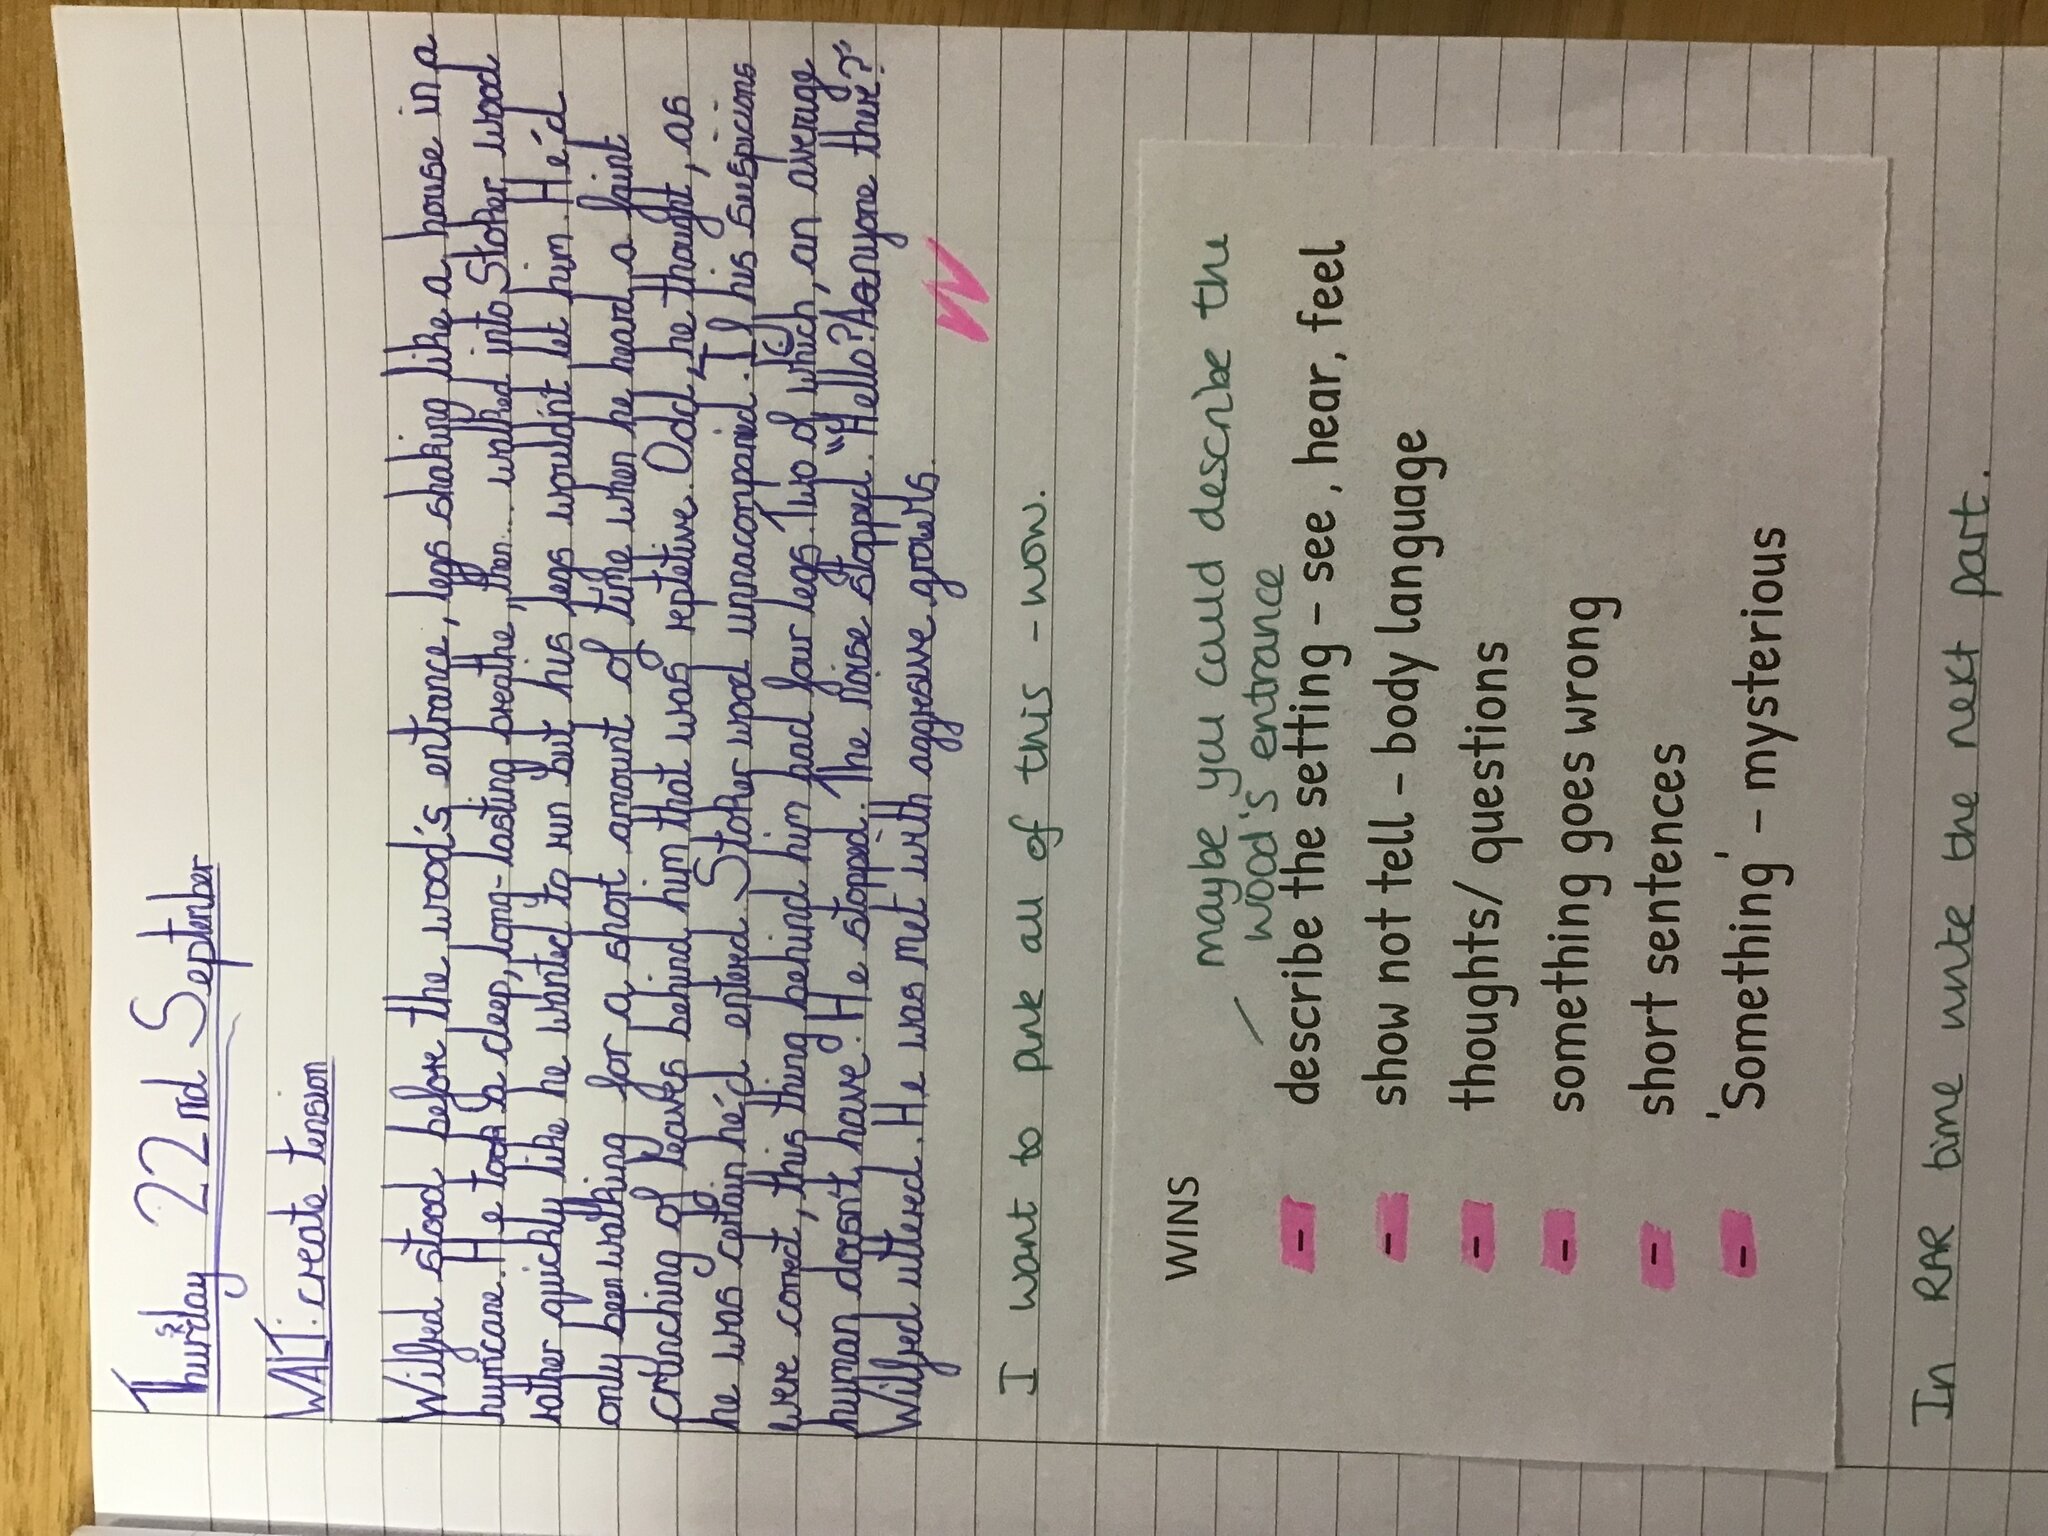 Thursday 22nd September
WALT: create tension
Wilfred stood before the wood's entrance, legs shaking like a house in a
hurricane. He took a deep, long-lasting breathe, then.... walked into Stoker wood
rather quickly like he wanted to run but his legs wouldn't let him. He'd
only been walking for a short amount of time when he heard a faint
crunching of leaves behind him that was reptetive. Odd, he thought, as
he was certain he'd entered Stoker wood unnacompanied. If his suspicions
were correct, this thing behind him had four legs. Two of which, an average
human doesn't have. He stopped. The noise stopped. "Hello? Aanyone there?"
Wilfred uttered. He was met with aggresive growls.
I want to pink all of this - wow.
maybe you could describe the
wood's entrance
WINS
- describe the setting – see, hear, feel
- show not tell – body language
- thoughts/ questions
- something goes wrong
- short sentences
- 'Something' – mysterious
In RAR time write the next part.